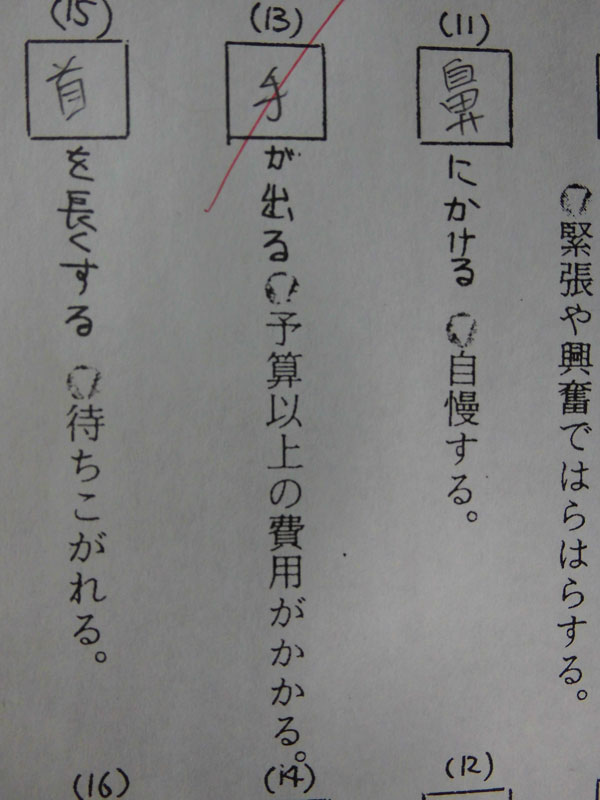 緊張や興奮ではらはらする。
(11)
鼻にかける 自慢する。
(13)
手が出る 予算以上の費用がかかる。
(15)
首を長くする 待ちこがれる。
(12)
(14)
(16)